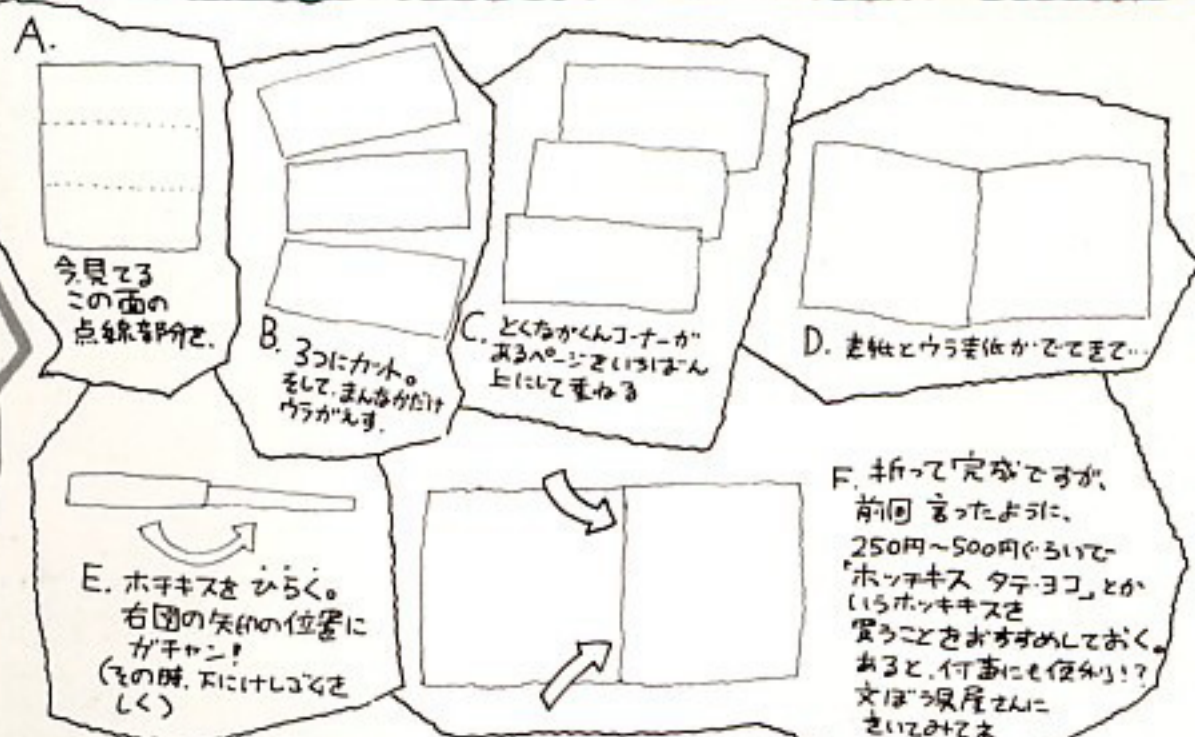 A.
今、見てる
この面の
点線部分を、
B. 3つにカット。
そして、まんなかだけ
ウラがえす。
C. とくながくんコーナーが
あるページをいちばん
上にして重ねる
D. 表紙とウラ表紙がでてきて…
E. ホチキスをひらく。
右図の矢印の位置に
ガチャン!
(その時、下にけしゴムを
しく)
F. 折って完成ですが、
前回 言ったように、
250円〜500円ぐらいで
「ホッチキス タテ・ヨコ」とか
いうホッチキスを
買うことをおすすめしておく。
あると、何事にも便利!?
文ぼう具屋さんに
きいてみてネ